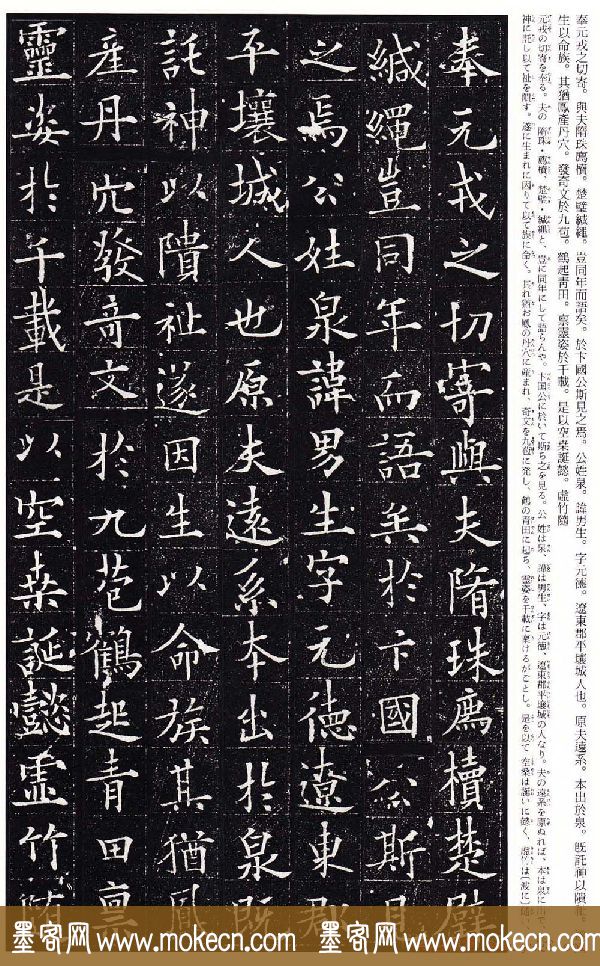 奉元戎之切寄。與夫隋珠廌櫝。楚璧緘繩。豈同年而語矣。於卞國公斯見之焉。公姓泉。諱男生。字元德。遼東郡平壤城人也。原夫遠系。本出於泉。既託神以隤
生以命族。其猶鳳產丹穴。發奇文於九苞。鶴起靑田。稟靈姿於千載。是以空桑誕懿。虛竹隨
元戎の切寄を奉る。夫の隋珠・廌櫝、楚璧・緘繩と、豈に同年にして語らんや。卞国公に於いて斯ち之を見る。公 姓は泉、諱は男生、字は元徳、遼東郡平壤城の人なり。夫の遠系を原ぬれば、本は泉に出で
神に託し以て祉を隤す。遂に生まれに因りて以て族に命く。其れ猶お鳳の丹穴に産まれ、奇文を九苞に発し、鶴の青田に起ち、霊姿を千載に稟けるがごとし。是を以て空桑は誕いに懿く、虚竹は〔波に〕随
奉元戎之切寄與夫隋珠廌櫝楚璧
緘繩豈同年而語矣於卞國公斯見
之焉公姓泉諱男生字元德遼東郡
平壤城人也原夫遠系本出於泉既
託神以隤祉遂因生以命族其猶鳳
產丹穴發奇文於九苞鶴起青田稟
靈姿於千載是以空桑誕懿虛竹隨
墨客网 www.mokecn.com 墨客网 www.mokecn.com